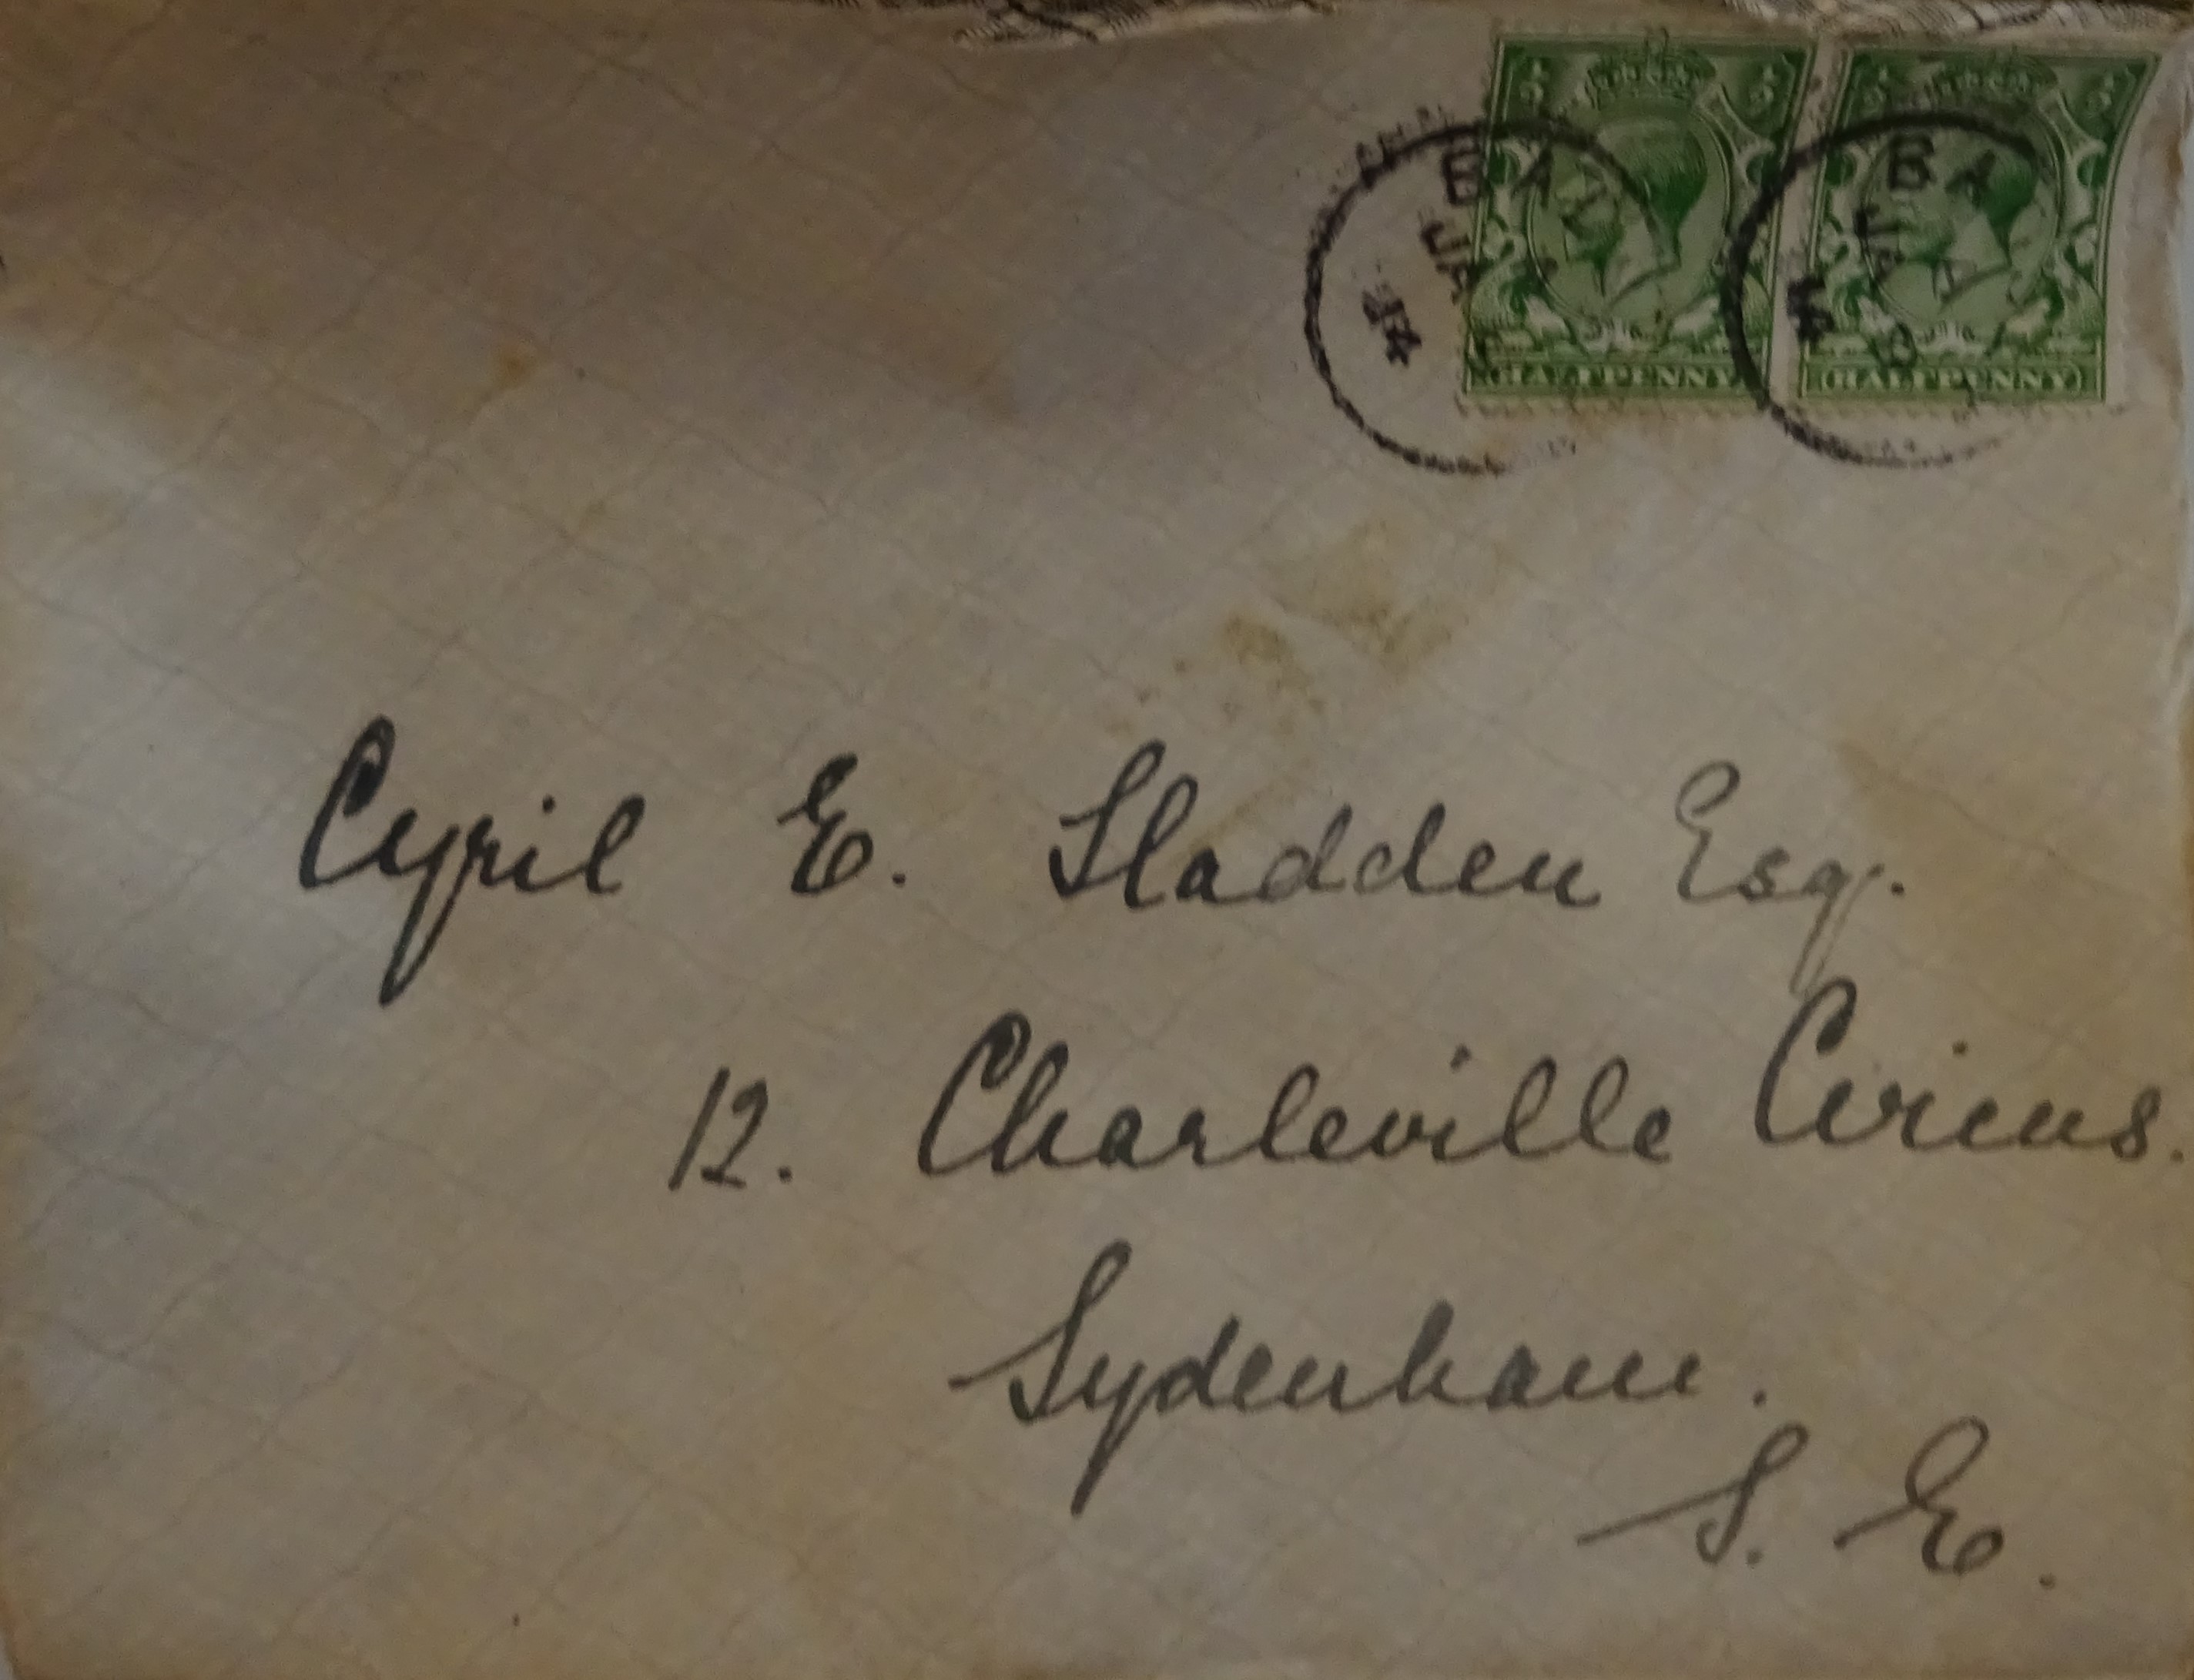 BA
JA
14
HALFPENNY
BA
JA
14
HALFPENNY
Cyril E. Sladden Esq.
12. Charleville Circus.
Sydenham.
S. E.